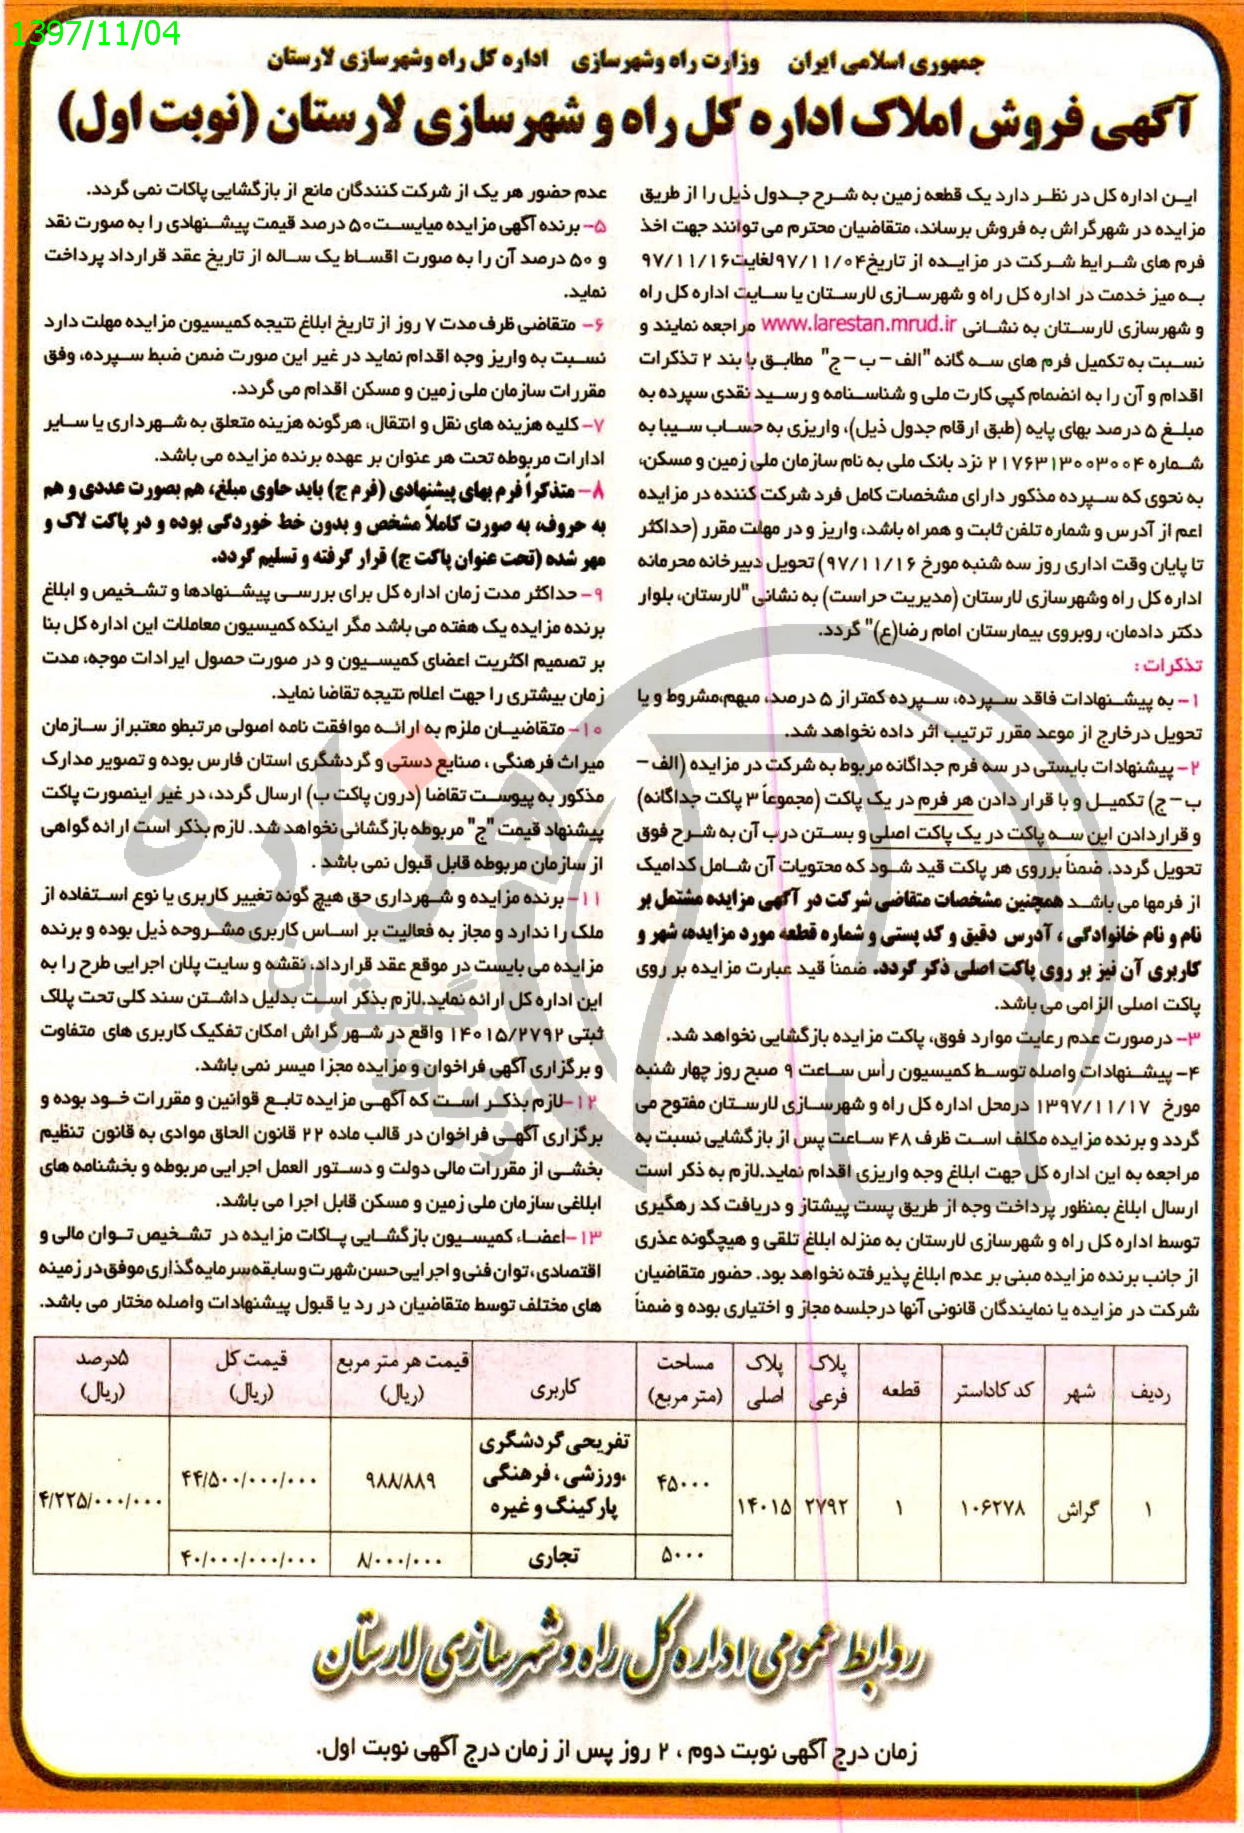 1397/11/04
جمهوری اسلامی ایران    وزارت راه وشهرسازی    اداره کل راه وشهرسازی لارستان
آگهی فروش املاک اداره کل راه و شهرسازی لارستان (نوبت اول)
این اداره کل در نظر دارد یک قطعه زمین به شرح جدول ذیل را از طریق
مزایده در شهرگراش به فروش برساند، متقاضیان محترم می توانند جهت اخذ
فرم های شرایط شرکت در مزایده از تاریخ۹۷/۱۱/۰۴لغایت۹۷/۱۱/۱۶
به میز خدمت در اداره کل راه و شهرسازی لارستان یا سایت اداره کل راه
و شهرسازی لارستان به نشانی www.larestan.mrud.ir مراجعه نمایند و
نسبت به تکمیل فرم های سه گانه "الف – ب – ج" مطابق با بند ۲ تذکرات
اقدام و آن را به انضمام کپی کارت ملی و شناسنامه و رسید نقدی سپرده به
مبلغ ۵ درصد بهای پایه (طبق ارقام جدول ذیل)، واریزی به حساب سیبا به
شماره ۲۱۷۶۳۱۳۰۰۳۰۰۴ نزد بانک ملی به نام سازمان ملی زمین و مسکن،
به نحوی که سپرده مذکور دارای مشخصات کامل فرد شرکت کننده در مزایده
اعم از آدرس و شماره تلفن ثابت و همراه باشد، واریز و در مهلت مقرر (حداکثر
تا پایان وقت اداری روز سه شنبه مورخ ۹۷/۱۱/۱۶) تحویل دبیرخانه محرمانه
اداره کل راه وشهرسازی لارستان (مدیریت حراست) به نشانی "لارستان، بلوار
دکتر دادمان، روبروی بیمارستان امام رضا(ع)" گردد.
تذکرات :
۱– به پیشنهادات فاقد سپرده، سپرده کمتر از ۵ درصد، مبهم،مشروط و یا
تحویل درخارج از موعد مقرر ترتیب اثر داده نخواهد شد.
۲– پیشنهادات بایستی در سه فرم جداگانه مربوط به شرکت در مزایده (الف –
ب – ج) تکمیل و با قرار دادن هر فرم در یک پاکت (مجموعاً ۳ پاکت جداگانه)
و قراردادن این سه پاکت در یک پاکت اصلی و بستن درب آن به شرح فوق
تحویل گردد. ضمناً برروی هر پاکت قید شود که محتویات آن شامل کدامیک
از فرمها می باشد همچنین مشخصات متقاضی شرکت در آگهی مزایده مشتمل بر
نام و نام خانوادگی ، آدرس دقیق و کد پستی و شماره قطعه مورد مزایده، شهر و
کاربری آن نیز بر روی پاکت اصلی ذکر گردد. ضمناً قید عبارت مزایده بر روی
پاکت اصلی الزامی می باشد.
۳– درصورت عدم رعایت موارد فوق، پاکت مزایده بازگشایی نخواهد شد.
۴– پیشنهادات واصله توسط کمیسیون رأس ساعت ۹ صبح روز چهار شنبه
مورخ ۱۳۹۷/۱۱/۱۷ درمحل اداره کل راه و شهرسازی لارستان مفتوح می
گردد و برنده مزایده مکلف است ظرف ۴۸ ساعت پس از بازگشایی نسبت به
مراجعه به این اداره کل جهت ابلاغ وجه واریزی اقدام نماید.لازم به ذکر است
ارسال ابلاغ بمنظور پرداخت وجه از طریق پست پیشتاز و دریافت کد رهگیری
توسط اداره کل راه و شهرسازی لارستان به منزله ابلاغ تلقی و هیچگونه عذری
از جانب برنده مزایده مبنی بر عدم ابلاغ پذیرفته نخواهد بود. حضور متقاضیان
شرکت در مزایده یا نمایندگان قانونی آنها درجلسه مجاز و اختیاری بوده و ضمناً
عدم حضور هر یک از شرکت کنندگان مانع از بازگشایی پاکات نمی گردد.
۵– برنده آگهی مزایده میایست۵۰ درصد قیمت پیشنهادی را به صورت نقد
و ۵۰ درصد آن را به صورت اقساط یک ساله از تاریخ عقد قرارداد پرداخت
نماید.
۶– متقاضی ظرف مدت ۷ روز از تاریخ ابلاغ نتیجه کمیسیون مزایده مهلت دارد
نسبت به واریز وجه اقدام نماید در غیر این صورت ضمن ضبط سپرده، وفق
مقررات سازمان ملی زمین و مسکن اقدام می گردد.
۷– کلیه هزینه های نقل و انتقال، هرگونه هزینه متعلق به شهرداری یا سایر
ادارات مربوطه تحت هر عنوان بر عهده برنده مزایده می باشد.
۸– متذکراً فرم بهای پیشنهادی (فرم ج) باید حاوی مبلغ، هم بصورت عددی و هم
به حروف، به صورت کاملاً مشخص و بدون خط خوردگی بوده و در پاکت لاک و
مهر شده (تحت عنوان پاکت ج) قرار گرفته و تسلیم گردد.
۹– حداکثر مدت زمان اداره کل برای بررسی پیشنهادها و تشخیص و ابلاغ
برنده مزایده یک هفته می باشد مگر اینکه کمیسیون معاملات این اداره کل بنا
بر تصمیم اکثریت اعضای کمیسیون و در صورت حصول ایرادات موجه، مدت
زمان بیشتری را جهت اعلام نتیجه تقاضا نماید.
۱۰– متقاضیان ملزم به ارائه موافقت نامه اصولی مرتبطو معتبراز سازمان
میراث فرهنگی ، صنایع دستی و گردشگری استان فارس بوده و تصویر مدارک
مذکور به پیوست تقاضا (درون پاکت ب) ارسال گردد، در غیر اینصورت پاکت
پیشنهاد قیمت "ج" مربوطه بازگشائی نخواهد شد. لازم بذکر است ارائه گواهی
از سازمان مربوطه قابل قبول نمی باشد .
۱۱– برنده مزایده و شهرداری حق هیچ گونه تغییر کاربری یا نوع استفاده از
ملک را ندارد و مجاز به فعالیت بر اساس کاربری مشروحه ذیل بوده و برنده
مزایده می بایست در موقع عقد قرارداد، نقشه و سایت پلان اجرایی طرح را به
این اداره کل ارائه نماید.لازم بذکر است بدلیل داشتن سند کلی تحت پلاک
ثبتی ۱۴۰۱۵/۲۷۹۲ واقع در شهر گراش امکان تفکیک کاربری های متفاوت
و برگزاری آگهی فراخوان و مزایده مجزا میسر نمی باشد.
۱۲–لازم بذکر است که آگهی مزایده تابع قوانین و مقررات خود بوده و
برگزاری آگهی فراخوان در قالب ماده ۲۲ قانون الحاق موادی به قانون تنظیم
بخشی از مقررات مالی دولت و دستور العمل اجرایی مربوطه و بخشنامه های
ابلاغی سازمان ملی زمین و مسکن قابل اجرا می باشد.
۱۳–اعضاء کمیسیون بازگشایی پاکات مزایده در تشخیص توان مالی و
اقتصادی، توان فنی و اجرایی حسن شهرت و سابقه سرمایه گذاری موفق در زمینه
های مختلف توسط متقاضیان در رد یا قبول پیشنهادات واصله مختار می باشد.
ردیف    شهر    کد کاداستر    قطعه    پلاک فرعی    پلاک اصلی    مساحت (متر مربع)    کاربری    قیمت هر متر مربع (ریال)    قیمت کل (ریال)    ۵درصد (ریال)
۱    گراش    ۱۰۶۲۷۸    ۱    ۲۷۹۲    ۱۴۰۱۵    ۴۵۰۰۰    تفریحی گردشگری ،ورزشی ، فرهنگی پارکینگ و غیره    ۹۸۸/۸۸۹    ۴۴/۵۰۰/۰۰۰/۰۰۰    ۴/۲۲۵/۰۰۰/۰۰۰
۵۰۰۰    تجاری    ۸/۰۰۰/۰۰۰    ۴۰/۰۰۰/۰۰۰/۰۰۰
روابط عمومی اداره کل راه و شهرسازی لارستان
زمان درج آگهی نوبت دوم ، ۲ روز پس از زمان درج آگهی نوبت اول.
هزاره